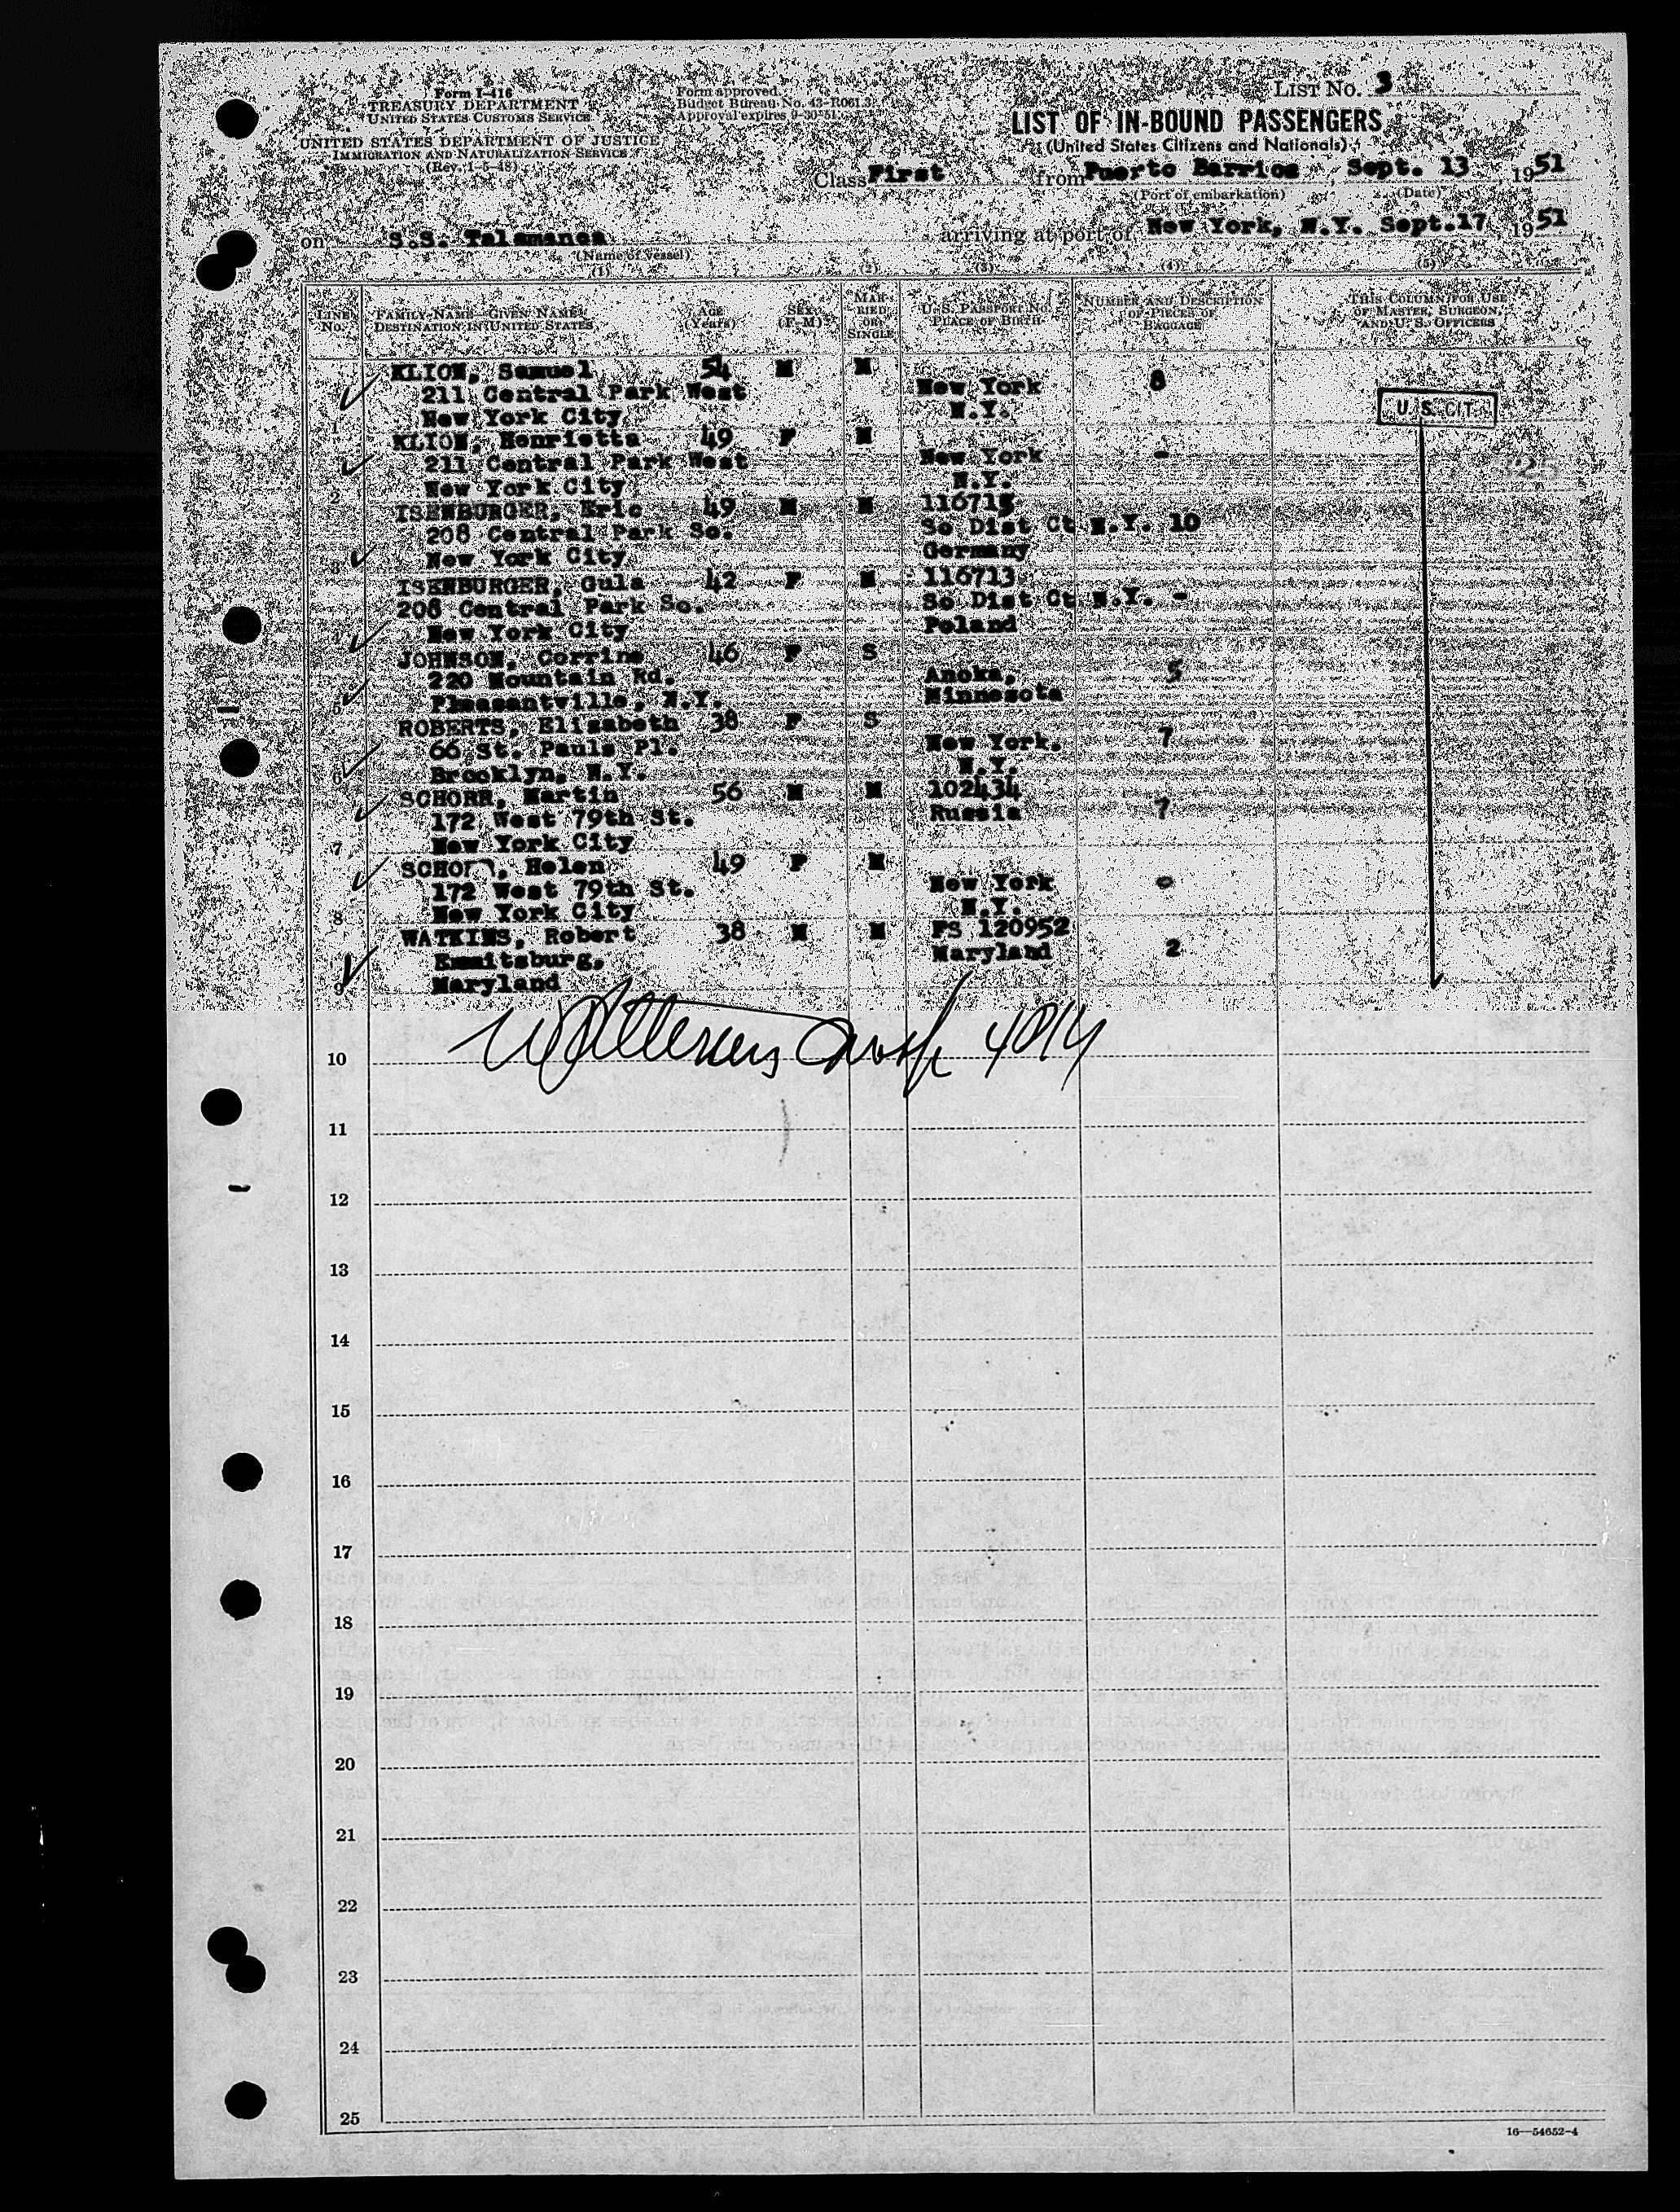 Form I-416
TREASURY DEPARTMENT
UNITED STATES CUSTOMS SERVICE
UNITED STATES DEPARTMENT OF JUSTICE
IMMIGRATION AND NATURALIZATION SERVICE
(Rev. 1-5-48)
Form approved.
Budget Bureau No. 43-R061.3.
Approval expires 9-30-51.
LIST No. 3
LIST OF IN-BOUND PASSENGERS
(United States Citizens and Nationals)
Class First from Puerto Barrios, Sept. 13, 1951
(Port of embarkation) (Date)
on S.S. Talamanca arriving at port of New York, N.Y. Sept.17 1951
(Name of vessel)
(1) (2) (3) (4) (5)
LINE No. FAMILY NAME—GIVEN NAME DESTINATION IN UNITED STATES AGE (Years) SEX (F-M) MARRIED OR SINGLE U. S. PASSPORT NO. PLACE OF BIRTH NUMBER AND DESCRIPTION OF PIECES OF BAGGAGE THIS COLUMN FOR USE OF MASTER, SURGEON, AND U. S. OFFICERS
KLION, Samuel 54 M M
211 Central Park West New York 8
1 New York City N.Y. U. S. CIT.
KLION, Henrietta 49 F M
211 Central Park West New York -
2 New York City N.Y.
ISENBURGER, Eric 49 M M 116715
208 Central Park So. So Dist Ct N.Y. 10
3 New York City Germany
ISENBURGER, Gula 42 F M 116713
208 Central Park So. So Dist Ct N.Y. -
4 New York City Poland
JOHNSON, Corrine 46 F S
220 Mountain Rd. Anoka, 5
5 Pleasantville, N.Y. Minnesota
ROBERTS, Elizabeth 38 F S
66 St. Pauls Pl. New York. 7
6 Brooklyn, N.Y. N.Y.
SCHORR, Martin 56 M M 102434
172 West 79th St. Russia 7
7 New York City
SCHORR, Helen 49 F M
172 West 79th St. New York -
8 New York City N.Y.
WATKINS, Robert 38 M M FS 120952
Emmitsburg, Maryland 2
9 Maryland
10
11
12
13
14
15
16
17
18
19
20
21
22
23
24
25
16—54652-4